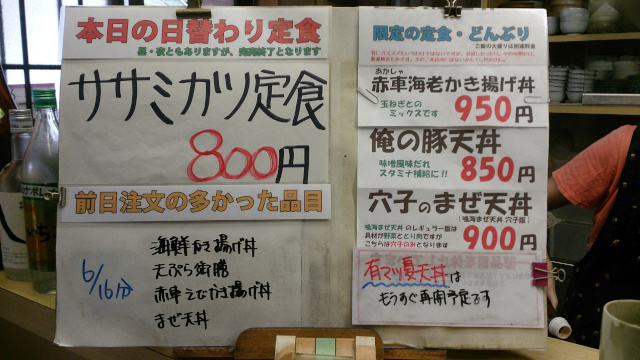 本日の日替わり定食
昼・夜ともありますが、完売終了となります
ササミカツ定食
800円
前日注文の多かった品目
6/16分
海鮮かき揚げ丼
天ぷら御膳
赤車えびかき揚げ丼
まぜ天丼
限定の定食・どんぶり
ご飯の大盛りは別途料金
あかしゃ
赤車海老かき揚げ丼
玉ねぎとの
ミックスです
950円
俺の豚天丼
味噌風味だれ
スタミナ補給に!!
850円
穴子のまぜ天丼
(鳴海まぜ天丼 穴子版)
鳴海まぜ天丼 のレギュラー版は
具材が野菜ととり肉ですが
こちらは穴子のみとなります
900円
有マツ夏天丼は
もうすぐ再開予定です